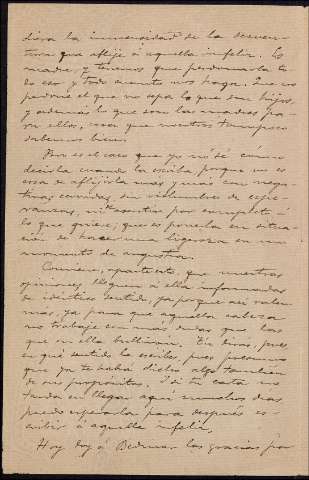 diera la inmensidad de la desven-
tura que aflije á aquella infeliz. Es
madre, y tenemos que perdonarla to-
do eso y todo cuanto nos haga. Que no
perdone el que no sepa lo que son hijos,
y además lo que son las madres pa-
ra ellos, cosa que nosotros tampoco
sabemos bien.
Pero es el caso que yo no sé cómo
decirla cuando la escriba porque no es
cosa de aflijirla mas y mas con nega-
tivas cerradas, sin vislumbre de espe-
ranzas, ni asentir por compasión á
lo que quiere, que es ponerla en situa-
ción de hacer una ligereza en un
momento de angustia.
Conviene, aparte esto, que nuestras
opiniones lleguen á ella informadas
de idéntico sentido, ya porque así valen
más, ya para que aquella cabeza
no trabaje con más dudas que las
que en ella bullirán. Tú dirás, pues
en qué sentido la escribes, pues presumo
que ya te habrá dicho algo también
de sus propósitos. Si tu carta no
tarda en llegar aquí muchos dias
puedo esperarla para después es-
cribir á aquella infeliz.
Hoy doy á Bedmar las gracias por